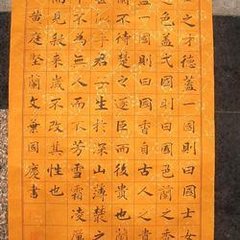 之才德蓋一國則曰國士女
色蓋一國則曰國色蘭之香
蓋一國則曰國香自古人之
蘭不待楚之逐臣而後貴也蘭
甚似乎君子生於深山薄叢之
不為無人而不芳雪霜凌厲
而見殺來歲不改其性也
黃庭堅蘭文 國慶書